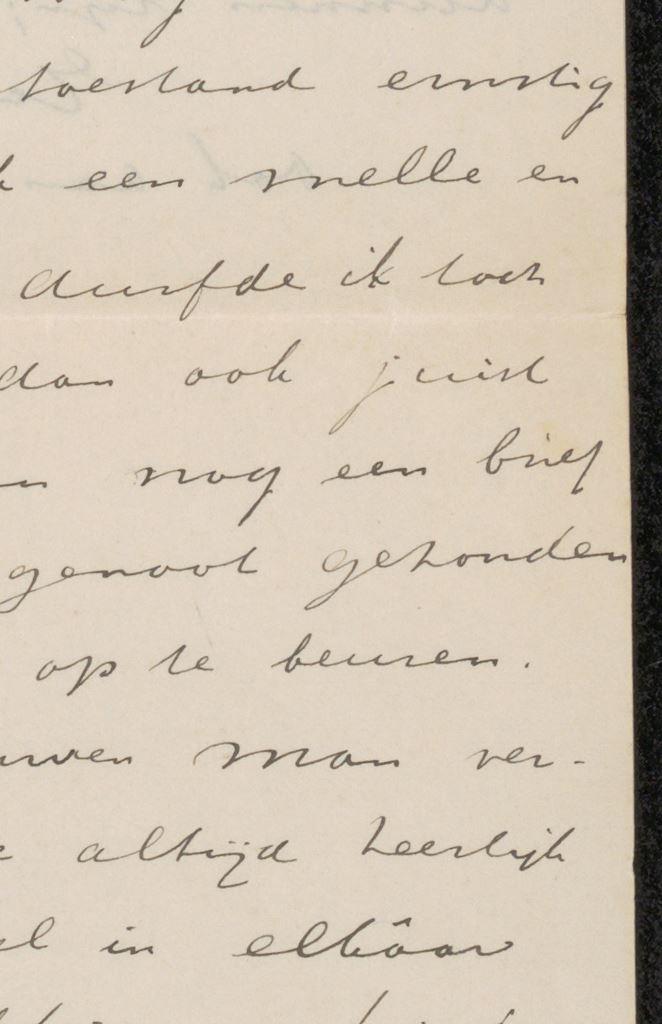 toestand ernstig
een snelle en
durfde ik toch
dan ook juist
nog een brief
genoot gehouden
op te beuren.
uwen man ver-
altijd heerlijk
in elkâar